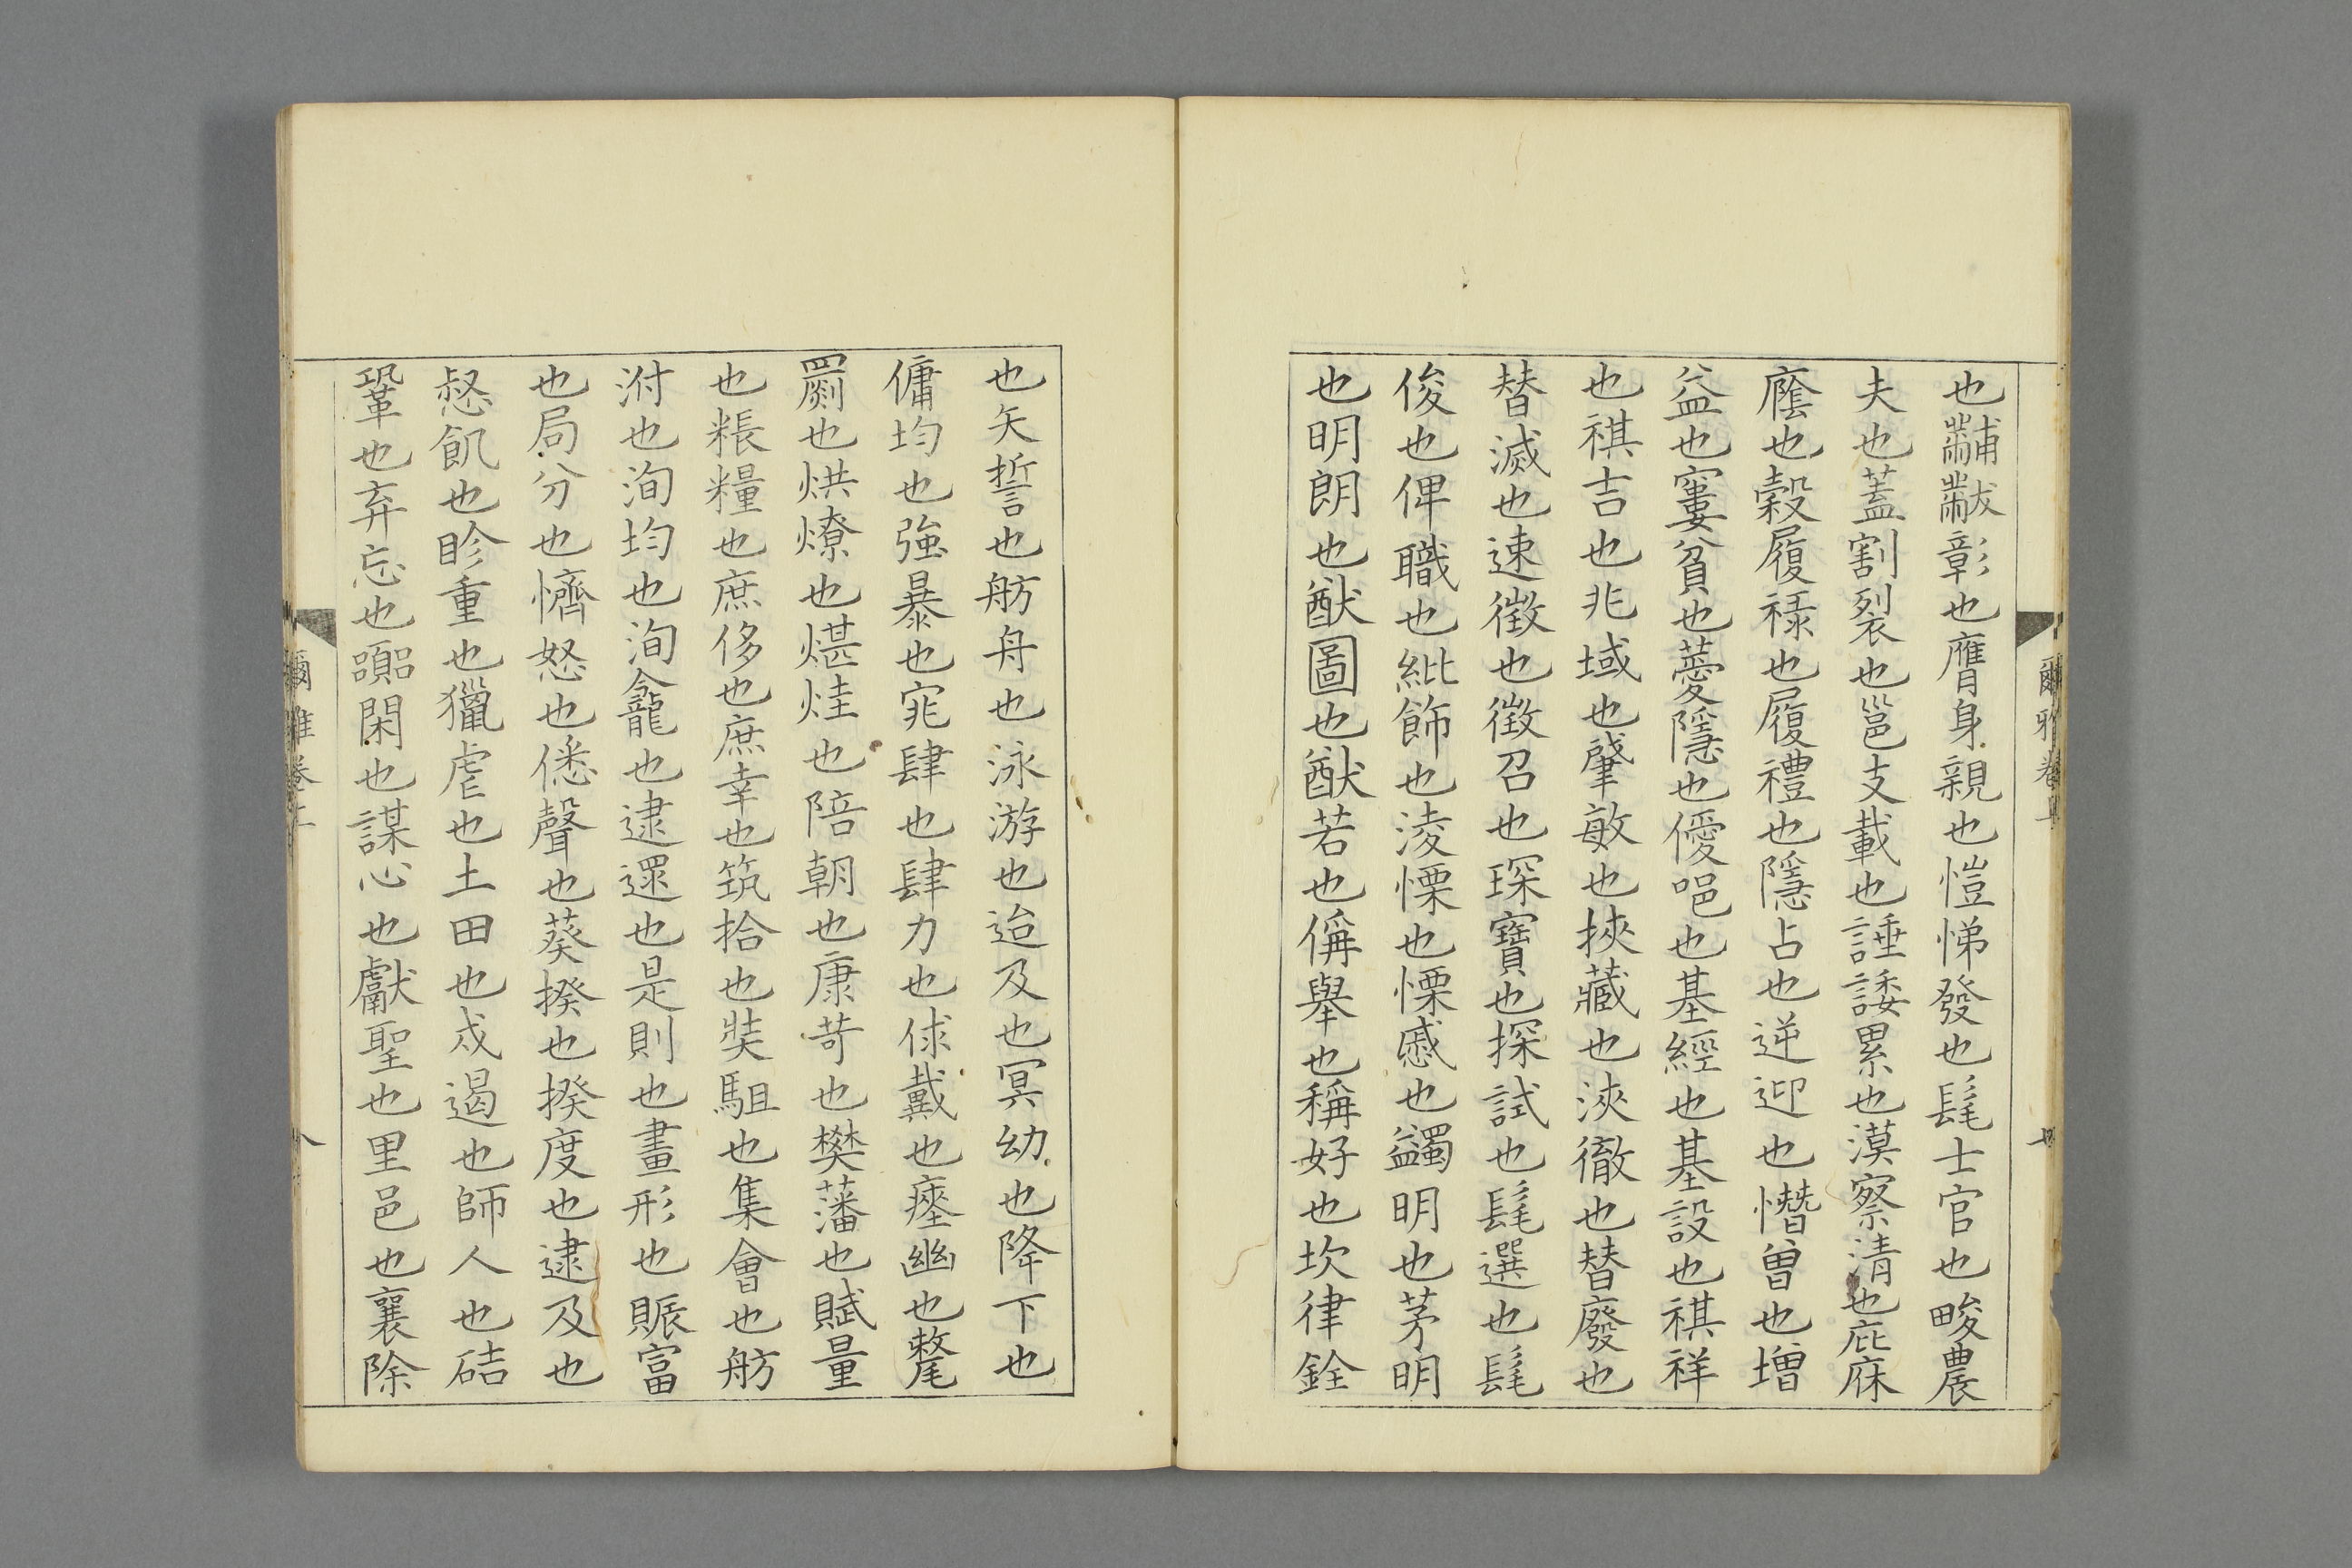 也黼黻彰也膺身親也愷悌發也髦士官也畯農
夫也蓋割裂也邕支載也諈諉累也漠察清也庇庥
廕也穀履祿也履禮也隱占也逆迎也憯曾也增
益也窶貧也薆隱也僾唈也基經也基設也祺祥
也祺吉也兆域也肈敏也挾藏也浹徹也替廢也
替滅也速徴也徴召也琛寶也探試也髦選也髦
俊也俾職也紕飾也淩慄也慄慼也蠲明也茅明
也明朗也猷圖也猷若也偁舉也稱好也坎律銓
也矢誓也舫舟也泳游也迨及也冥幼也降下也
傭均也強暴也窕肆也肆力也俅戴也瘞幽也氂
罽也烘燎也煁烓也陪朝也康苛也樊藩也賦量
也粻糧也庶侈也庶幸也筑拾也奘駔也集會也舫
泭也洵均也洵龕也逮還也是則也畫形也賑富
也局分也懠怒也僁聲也葵揆也揆度也逮及也
惄飢也眕重也獵虐也土田也戍遏也師人也硈
鞏也弃忘也嚻閑也謀心也獻聖也里邑也襄除